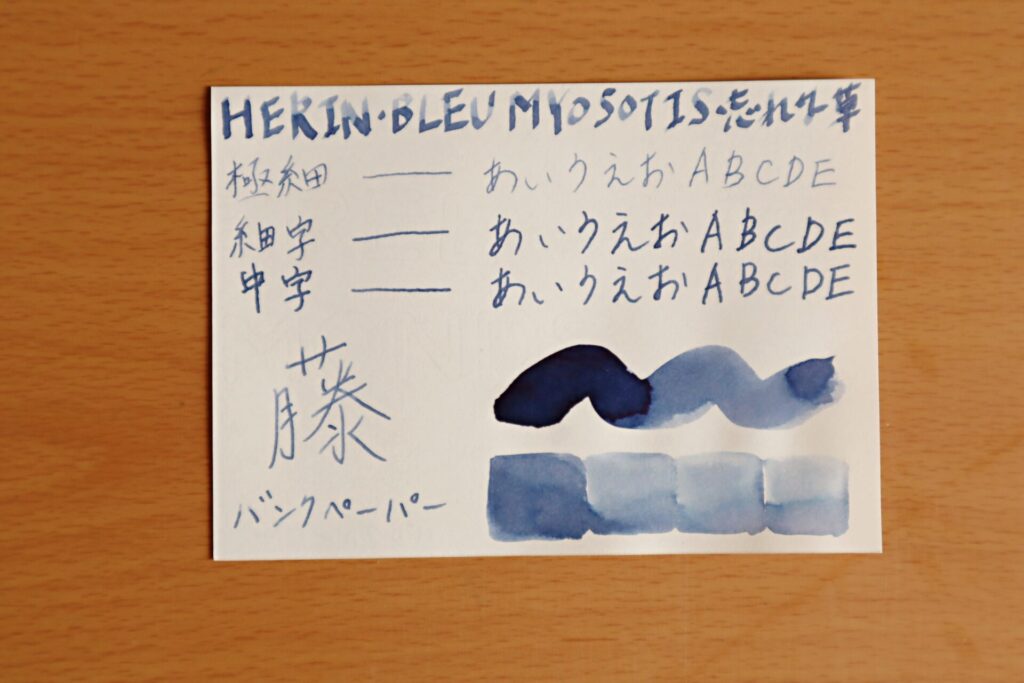 HERIN・BLEU MYOSOTIS・忘れな草
極細 ― あいうえお ABCDE
細字 ― あいうえお ABCDE
中字 ― あいうえお ABCDE
藤
バンクペーパー